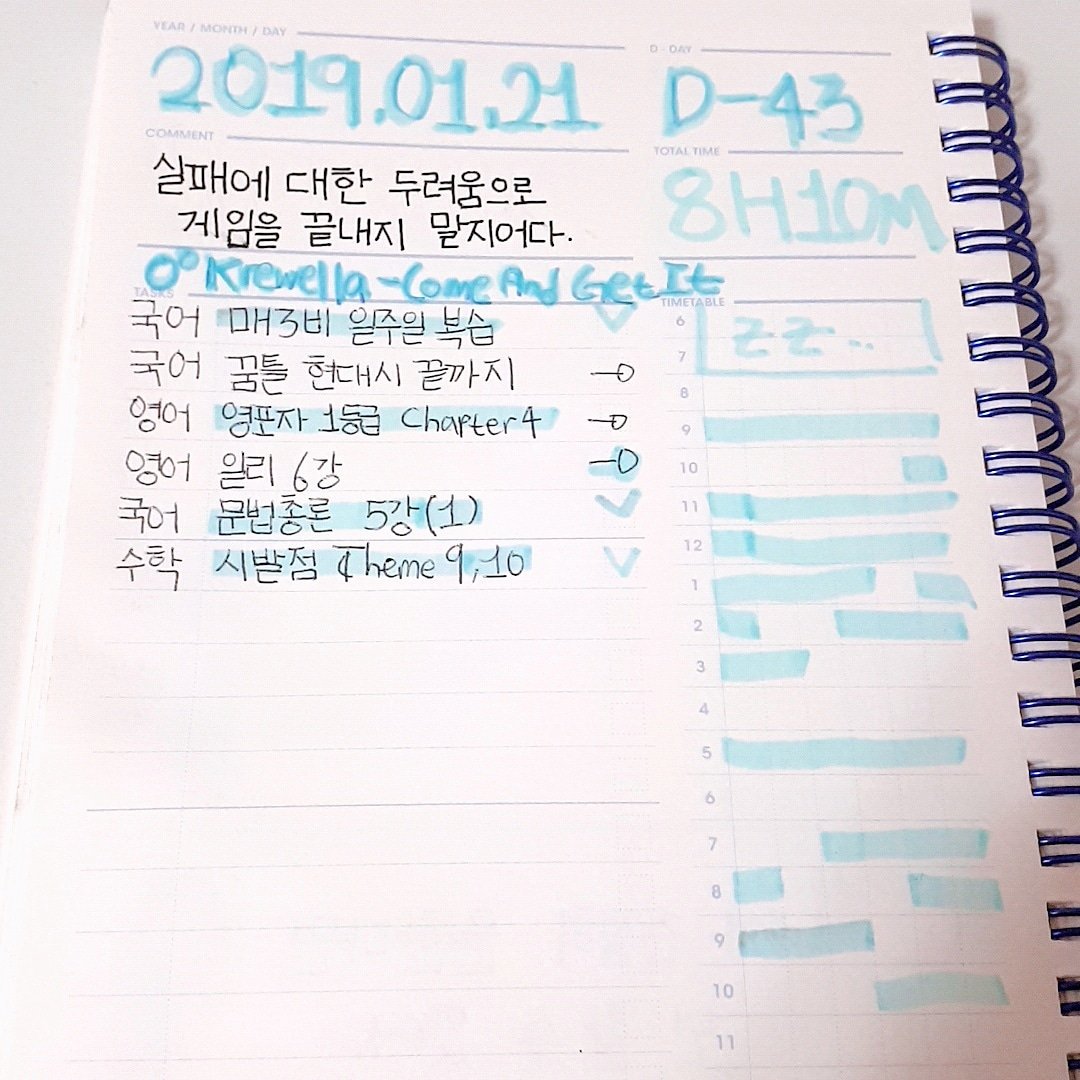 YEAR / MONTH / DAY
2019.01.21
D - DAY
D-43
COMMENT
실패에 대한 두려움으로
게임을 끝내지 말지어다.
TOTAL TIME
8H10M
Krewella - Come And Get It
TASKS
국어 매3비 일주일 복습
국어 꿈틀 현대시 끝까지
영어 영포자 1등급 Chapter 4
영어 일리 6강
국어 문법총론 5강(1)
수학 시발점 Theme 9,10
TIMETABLE
6
zz..
7
8
9
10
11
12
1
2
3
4
5
6
7
8
9
10
11